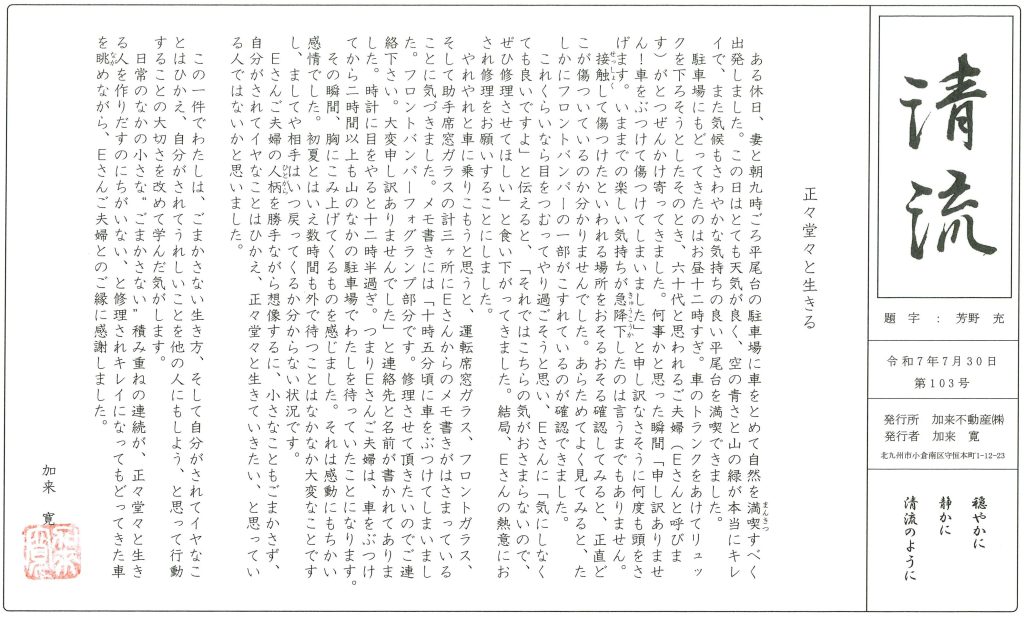 清流
題字：芳野 充
令和7年7月30日
第103号
発行所 加来不動産㈱
発行者 加来 寛
北九州市小倉南区守恒本町1-12-23
穏やかに
静かに
清流のように
正々堂々と生きる
ある休日、妻と朝九時ごろ平尾台の駐車場に車をとめて自然を満喫すべく
まんきつ
出発しました。この日はとても天気が良く、空の青さと山の緑が本当にキレ
イで、また気候もさわやかな気持ちの良い平尾台を満喫できました。
駐車場にもどってきたのはお昼十二時すぎ。車のトランクをあけてリュッ
クを下ろそうとしたそのとき、六十代と思われるご夫婦（Ｅさんと呼びま
す）がとつぜんかけ寄ってきました。何事かと思った瞬間「申し訳ありませ
ん！車をぶつけて傷つけてしまいました」と申し訳なさそうに何度も頭をさ
げます。いままでの楽しい気持ちが急降下したのは言うまでもありません。
きゅうこうか
接触して傷つけたといわれる場所をおそるおそる確認してみると、正直ど
せっしょく
こが傷ついているのか分かりませんでした。あらためてよく見てみると、た
しかにフロントバンパーの一部がこすれているのが確認できました。
これくらいなら目をつむってやり過ごそうと思い、Ｅさんに「気にしなく
ても良いですよ」と伝えると、「それではこちらの気がおさまらないので、
ぜひ修理させてほしい」と食い下がってきました。結局、Ｅさんの熱意にお
され修理をお願いすることにしました。
やれやれと車に乗りこもうと思うと、運転席窓ガラス、フロントガラス、
そして助手席窓ガラスの計三ヶ所にＥさんからのメモ書きがはさまっている
ことに気づきました。メモ書きには「十時五分頃に車をぶつけてしまいまし
た。フロントバンパーフォグランプ部分です。修理させて頂きたいのでご連
絡下さい。大変申し訳ありませんでした」と連絡先と名前が書かれてありま
した。時計に目をやると十二時半過ぎ。つまりＥさんご夫婦は、車をぶつけ
てから二時間以上も山のなかの駐車場でわたしを待っていたことになります。
その瞬間、胸にこみ上げてくるものを感じました。それは感動にもちかい
感情でした。初夏とはいえ数時間も外で待つことはなかなか大変なことです
し、ましてや相手はいつ戻ってくるか分からない状況です。
Ｅさんご夫婦の人柄を勝手ながら想像するに、小さなこともごまかさず、
ひとがら
自分がされてイヤなことはひかえ、正々堂々と生きていきたい、と思ってい
る人ではないかと思いました。
この一件でわたしは、ごまかさない生き方、そして自分がされてイヤなこ
とはひかえ、自分がされてうれしいことを他の人にもしよう、と思って行動
することの大切さを改めて学んだ気がします。
日常のなかの小さな〝ごまかさない〟積み重ねの連続が、正々堂々と生き
る人を作りだすのにちがいない、と修理されキレイになってもどってきた車
を眺めながら、Ｅさんご夫婦とのご縁に感謝しました。
なが
加来 寛